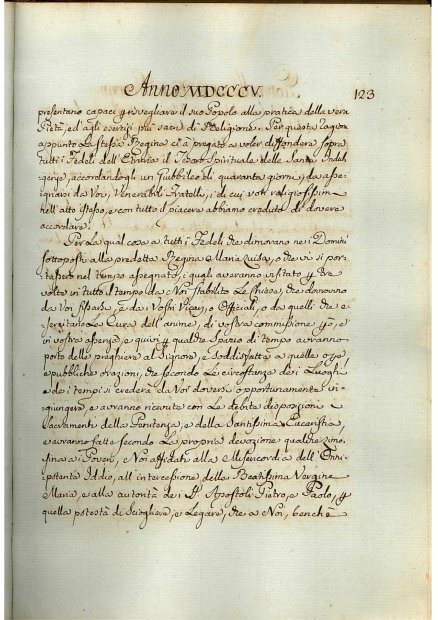 Anno MDCCCV. 123
presentano capaci p risvegliare il suo Popolo alla pratica della vera
Pietà, ed agli esercizi più sacri di Religione. Per questa ragione
appunto La stessa Regina ci à pregato a voler diffondere sopra
tutti i Fedeli dell'Etruria il Tesoro Spirituale delle Sante Indul-
genze, accordando gli un Giubbileo di quaranta giorni, da asse-
gnarsi da Voi, Venerabili Fratelli, i di cui voti religiosissimi
nell'atto istesso, e con tutto il piacere abbiamo creduto di dovere
accordare.
Per La qual cosa a tutti i Fedeli che dimorano nei Domini
sottoposti alla predetta Regina Maria Luisa, o che vi si por-
tassero nel tempo assegnato, i quali averanno visitato p tre
volte in tutto il tempo da Noi stabilito Le Chiese, che dovranno
da Voi fissarsi, e da Vostri Vicari, o Officiali, o da quelli che e-
sercitano La Cura dell'anime, di vostra commissione però, e
in vostra assenza, e quivi p qualche spazio di tempo avranno
porto delle preghiere al Signore, e soddisfatto a quelle
e pubbliche orazioni, che secondo Le circostanze dei Luoghi
e dei tempi si crederà da Voi doversi opportunamente in-
giungere, e avranno ricevuto con Le debite disposizioni i
Sacramenti della Penitenza, e della Santissima Eucaristia,
e avranno fatta secondo La propria devozione qualche Limo-
sina ai Poveri, e Noi affidati alla Misericordia dell'Onni-
potente Iddio, all'intercessione della Beatissima Vergine
Maria, e alla autorità dei SS. Apostoli Pietro, e Paolo, p
quella potestà di Sciogliere, e Legare, che a Noi, benchè